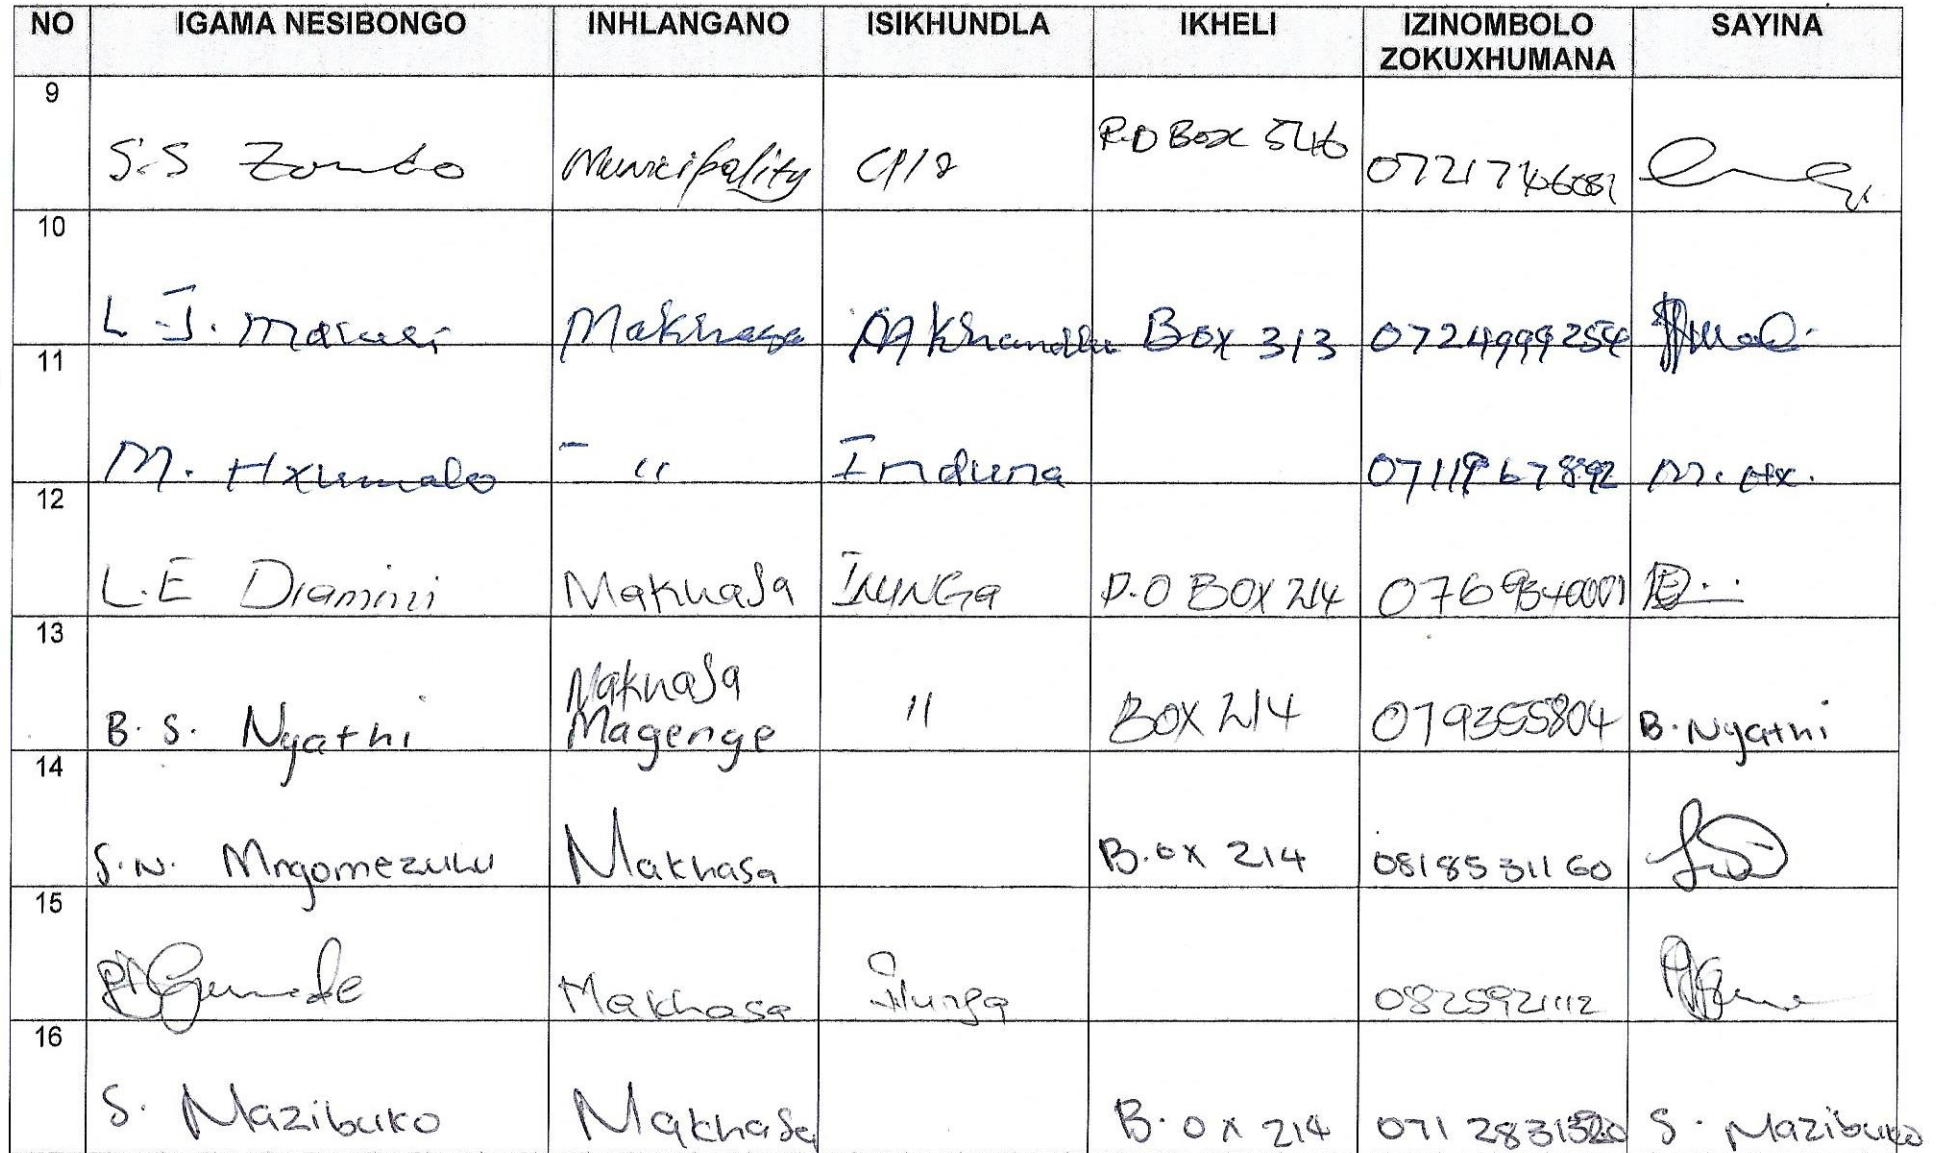 NO IGAMA NESIBONGO INHLANGANO ISIKHUNDLA IKHELI IZINOMBOLO ZOKUXHUMANA SAYINA
9
S.S Zondo Municipality P.O Box 546
10
L.J. Makhasa Mkhandlu Box 313 0724999254
11
M. Hxumalo " Induna M. Hx.
12
L.E Dlamini Makhasa P.O BOX 214
13
B. S. Nyathi Makhasa Magenge " BOX 214 079355804 B. Nyathi
14
S.N. Mngomezulu Makhasa B.ox 214 0818531160
15
Gumede Makhasa ilunga 0825921112
16
S. Mazibuko Makhasa B.ox 214 S. Mazibuko